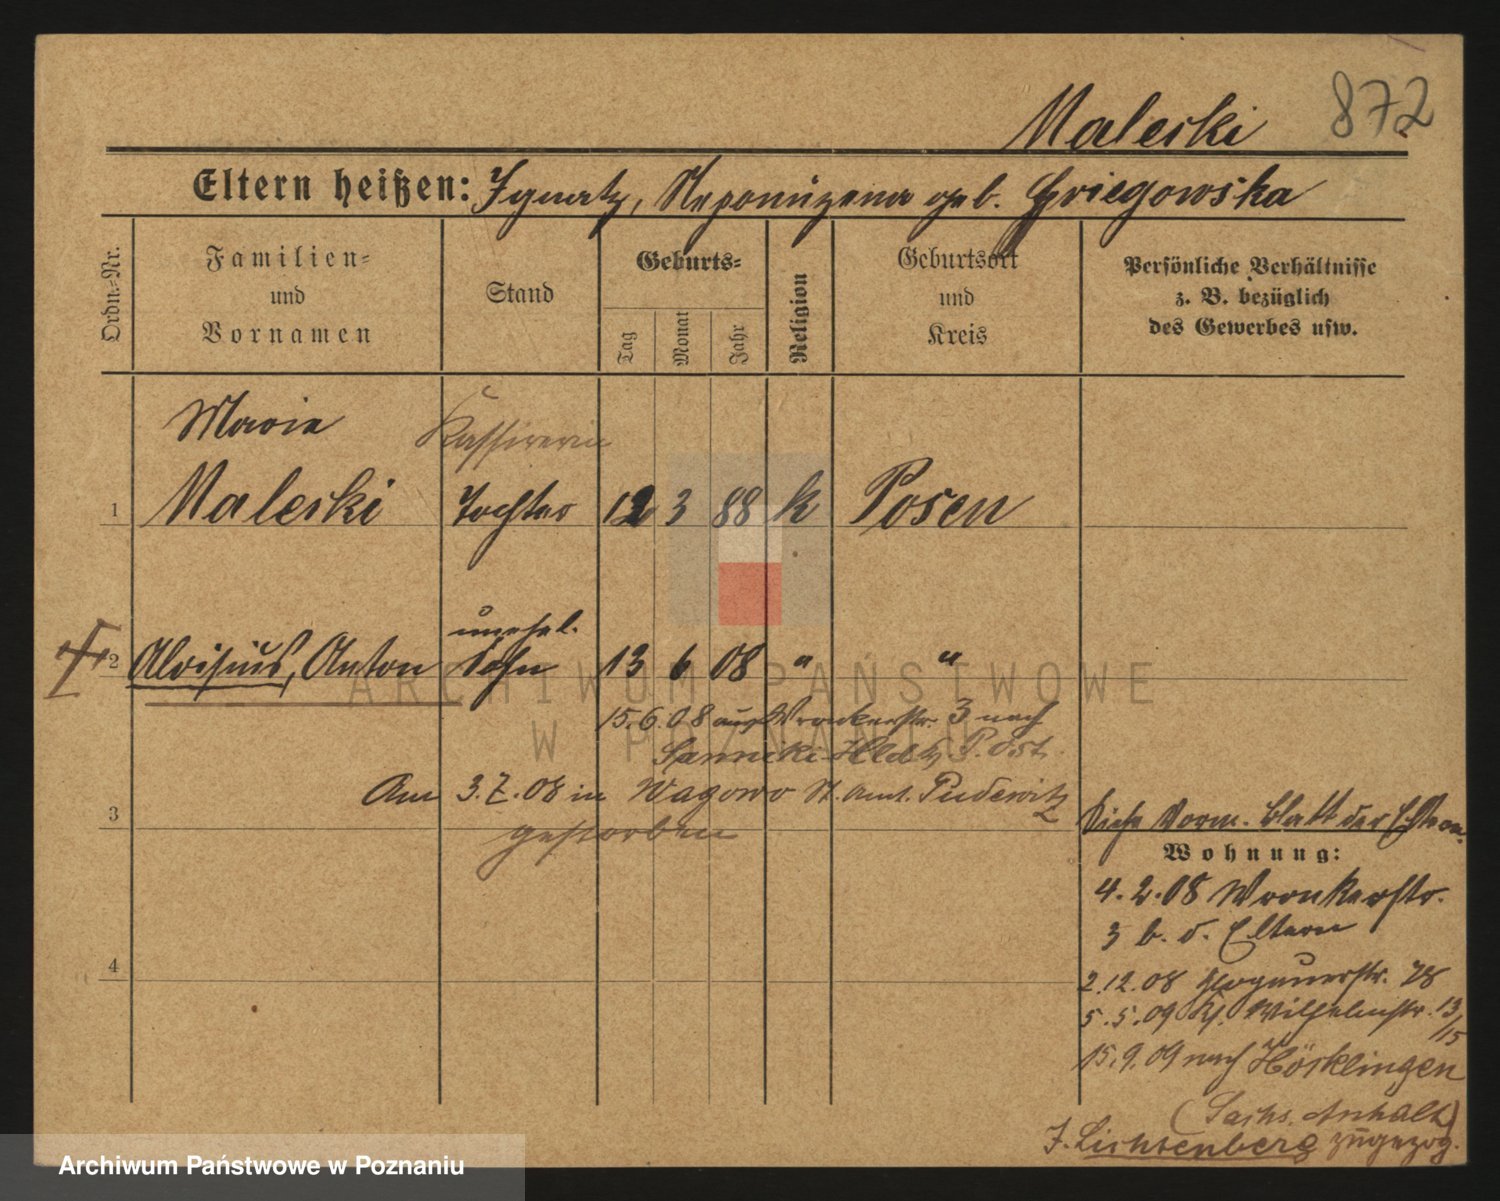 872
Maleski
Eltern heißen: Ignatz, Nepomuzena geb. Griegowska
Ordn.-Nr.
Familien- und Vornamen
Stand
Geburts-
Tag
Monat
Jahr
Religion
Geburtsort und Kreis
Persönliche Verhältnisse
z. B. bezüglich
des Gewerbes usw.
Marie Kassirerin
1 Maleski Tochter 12 3 88 k Posen
unehel.
2 Aloisius, Anton Sohn 13 6 08 " "
15.6.08 aus Wronkerstr. 3 nach
P. Ost.
Am 3.7.08 in Wagowo St. Amt. Pudewitz
gestorben
3
Siehe Vorm. Blatt der Eltern.
Wohnung:
4.2.08 Wronkerstr.
3 b. d. Eltern
4
2.12.08 Glogauerstr. 78
5.5.09 Kl. Wilhelmstr. 13/15
15.9.09 nach Hösklingen
(Sachs. Anhalt)
Z. Lichtenberg zugezog.
ARCHIWUM PAŃSTWOWE
W POZNANIU
Archiwum Państwowe w Poznaniu